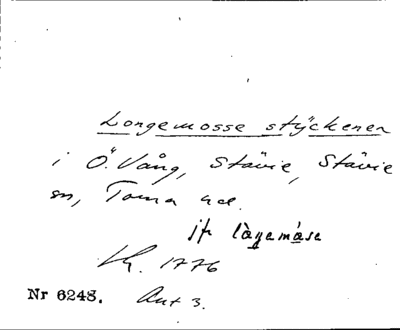 Longemosse stÿckenen
i Ö. Vång, Stävie, Stävie
sn, Torna hd.
jfr lågemåse
Lh. 1776
Nr 6248. Akt 3.